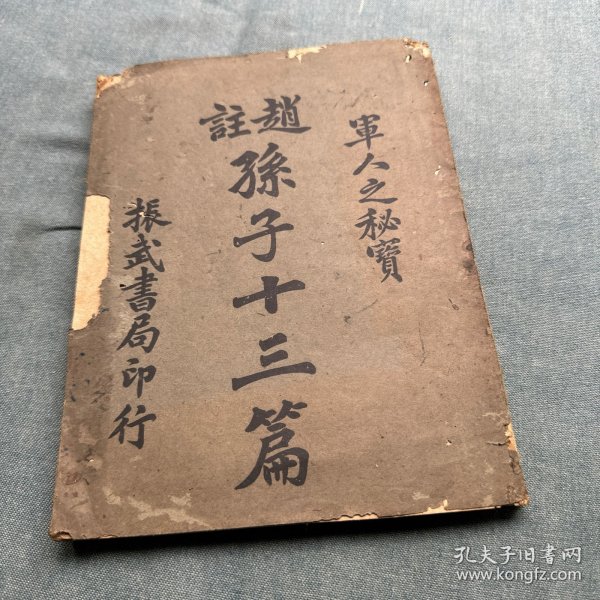 軍人之秘寶
趙註
孫子十三篇
振武書局印行
孔夫子旧书网
www.kongfz.com